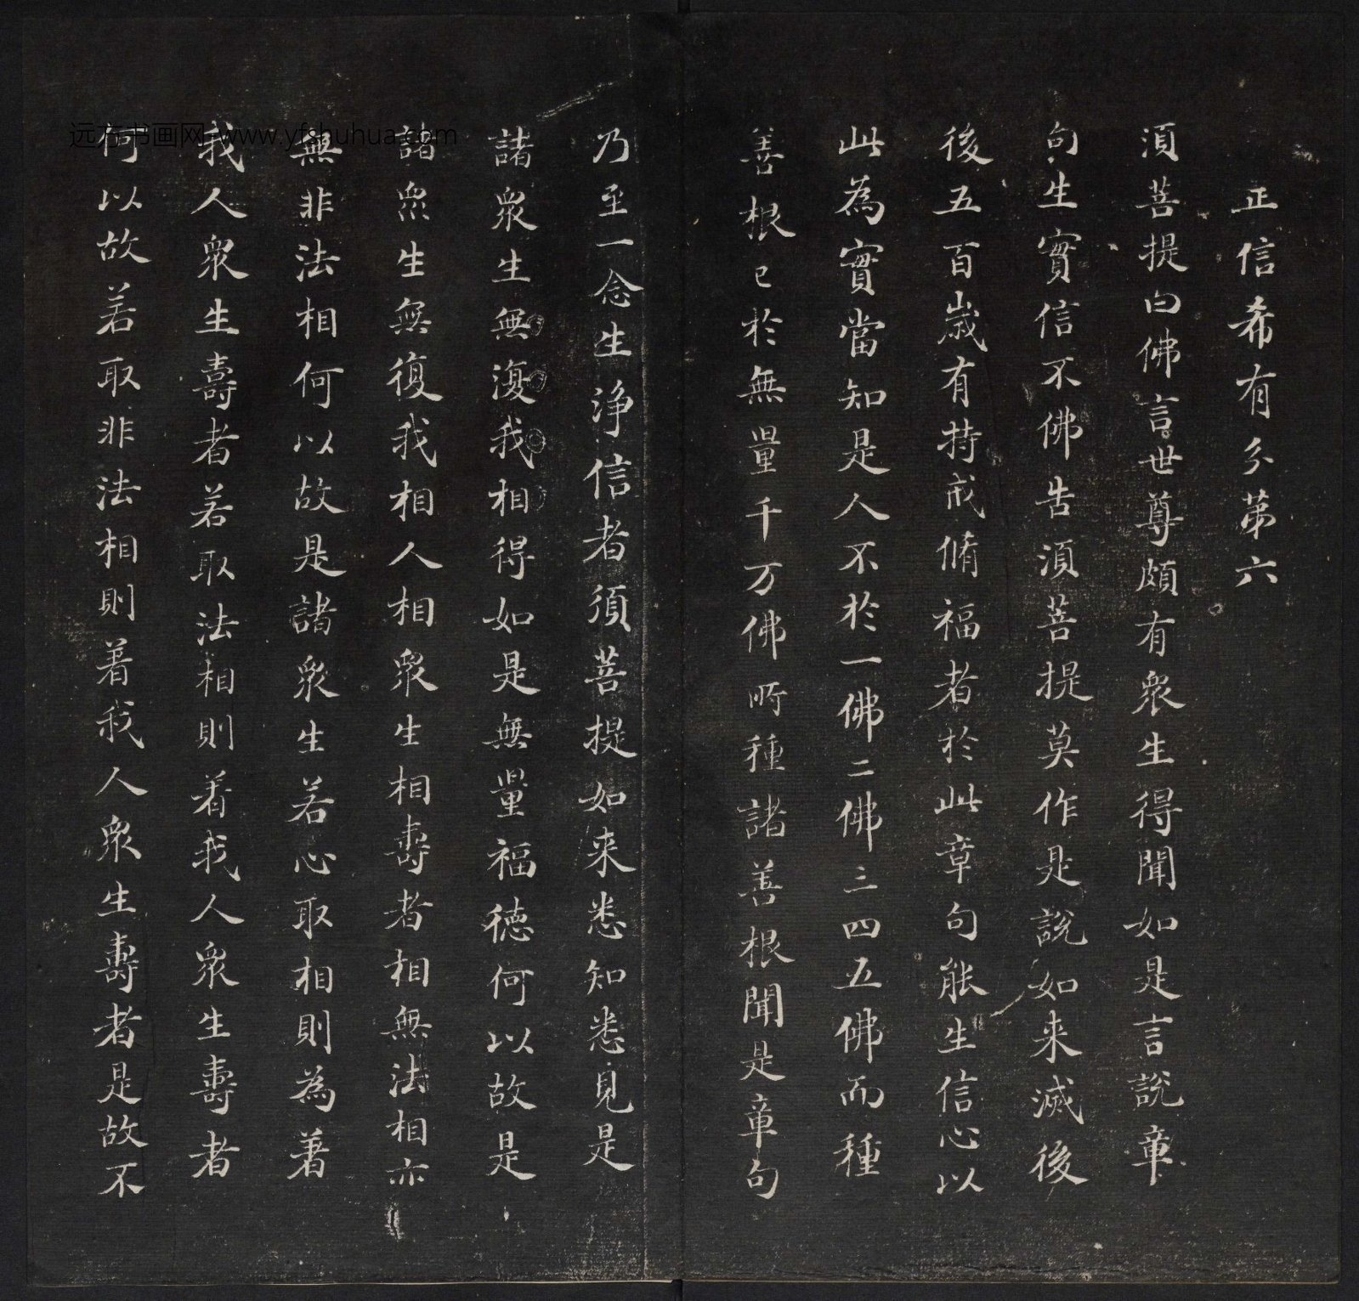 正信希有分苐六
湏菩提白佛言世尊頗有衆生得聞如是言說章
句生實信不佛告湏菩提莫作是說如来滅後
後五百歲有持戒脩福者於此章句能生信心以
此為實當知是人不於一佛二佛三四五佛而種
善根已於無量千万佛所種諸善根聞是章句
乃至一念生淨信者須菩提如来悉知悉見是
諸衆生無復我相得如是無量福德何以故是
諸衆生無復我相人相衆生相壽者相無法相亦
無非法相何以故是諸衆生若心取相則為著
我人衆生壽者若取法相則着我人衆生壽者
何以故若取非法相則着我人衆生壽者是故不
远方书画网 www.yfshuhua.com